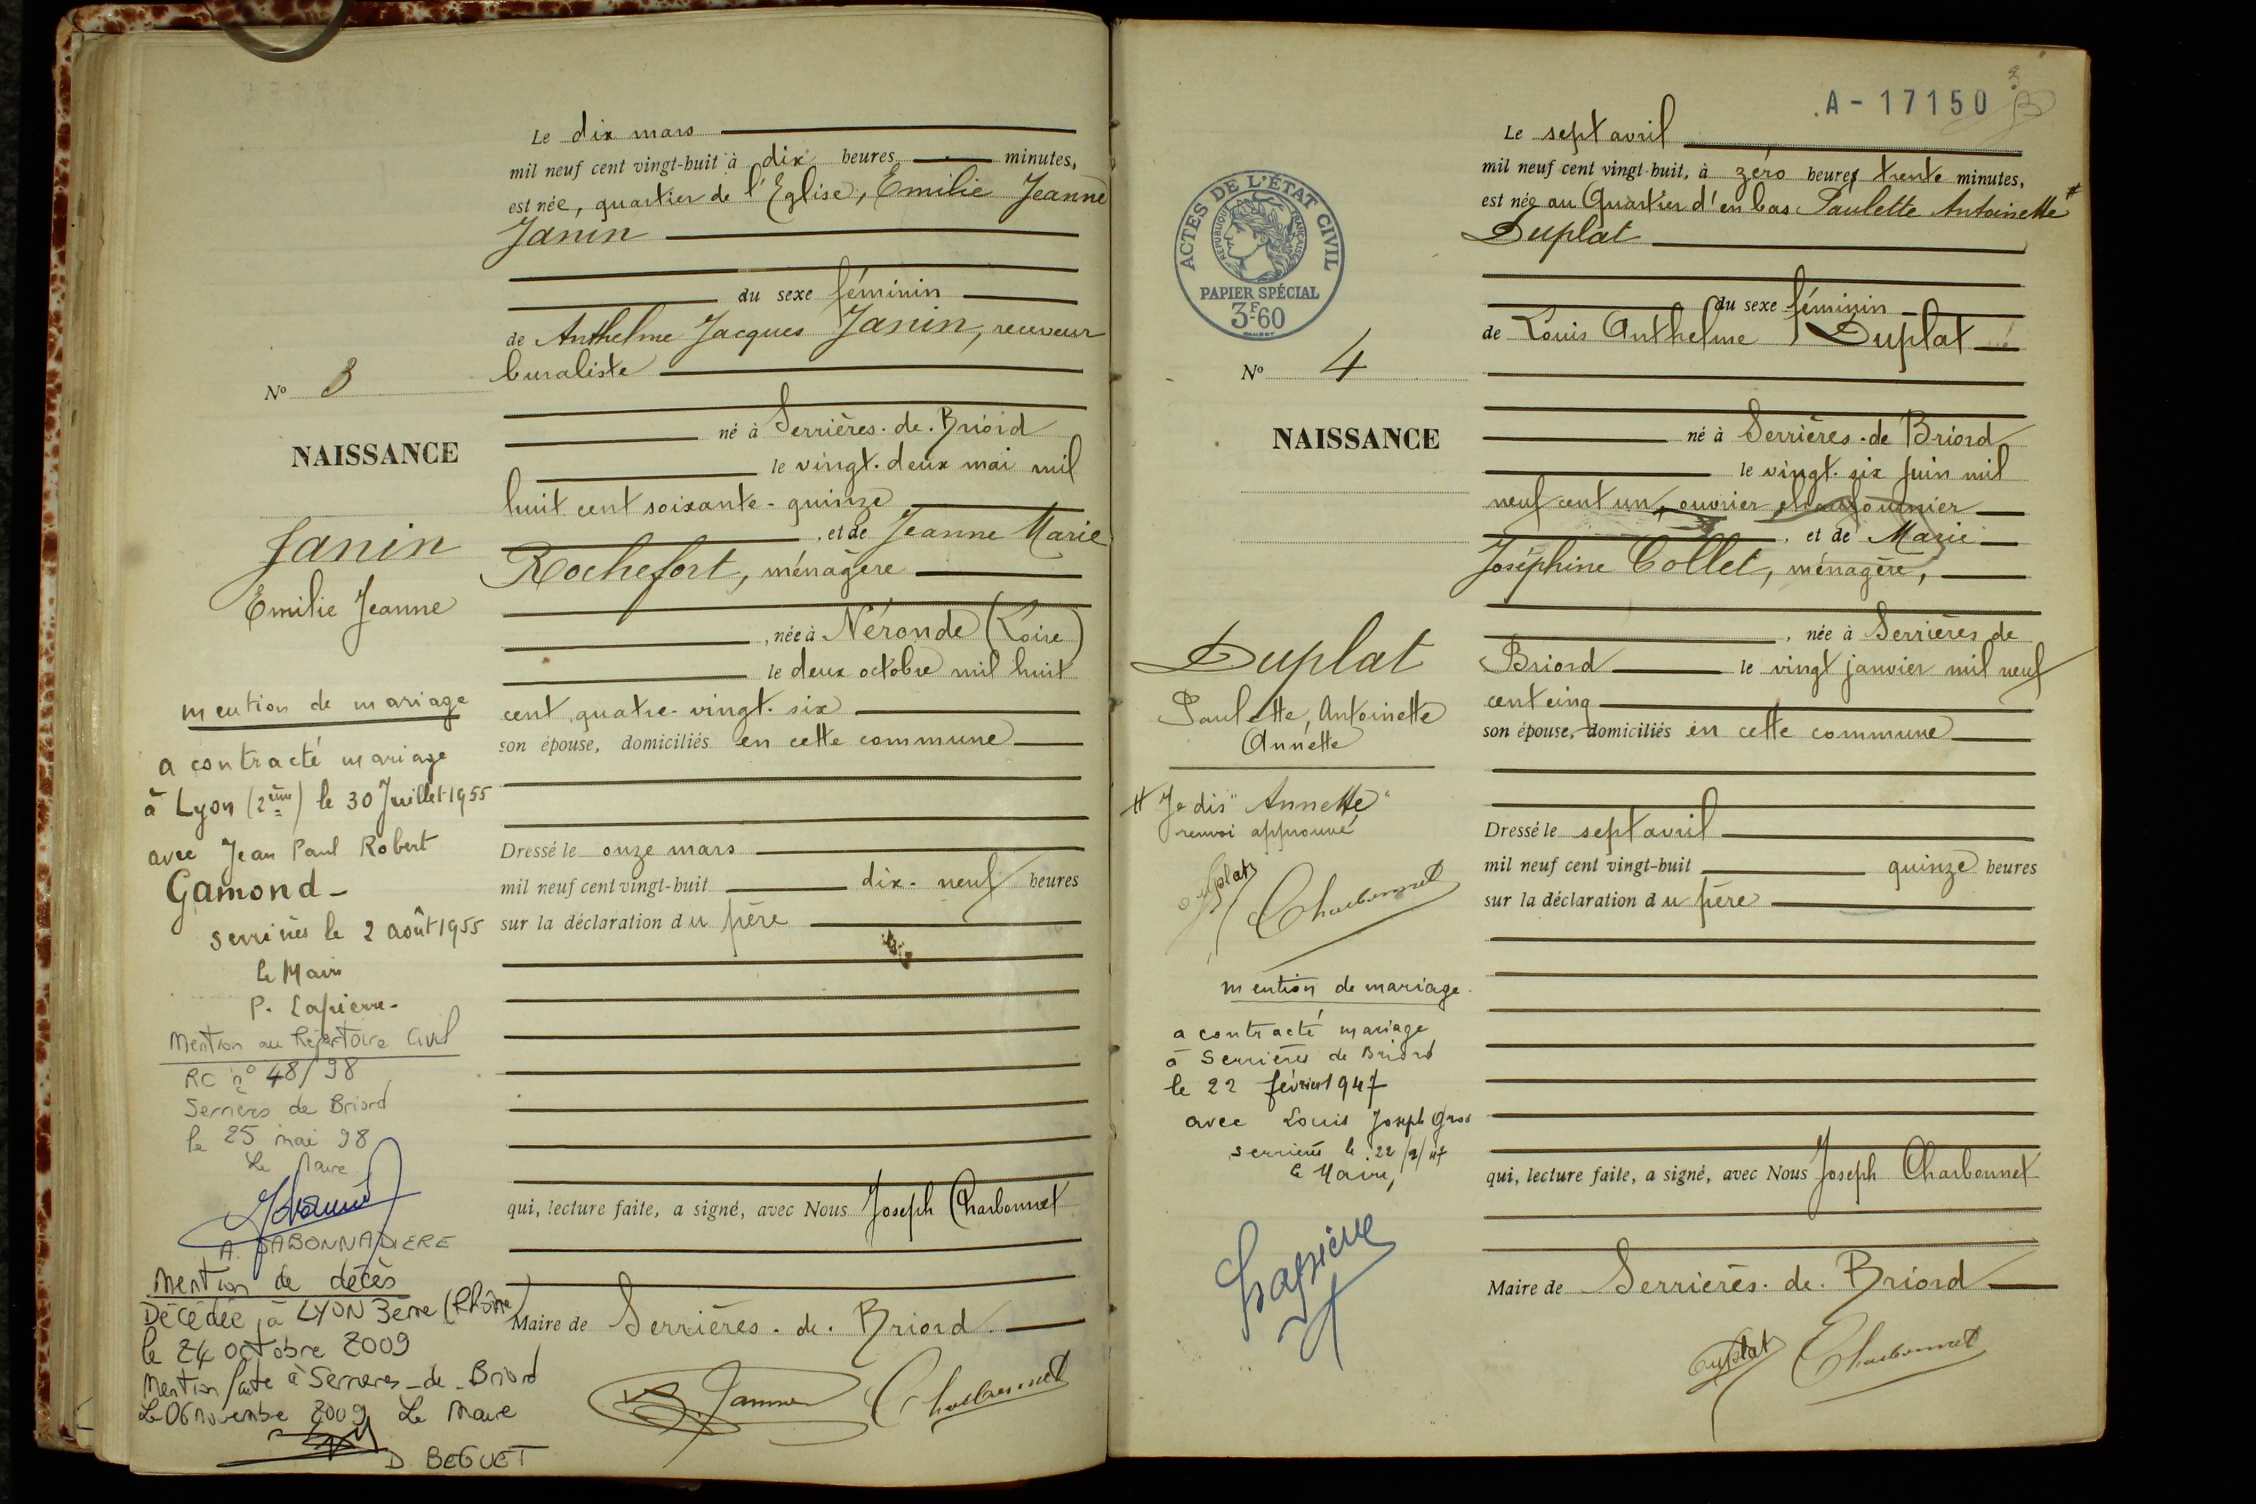 Le dix mars
mil neuf cent vingt-huit à dix heures minutes,
est née, quartier de l'Eglise, Emilie Jeanne
Janin
du sexe féminin
de Anthelme Jacques Janin, receveur
buraliste
né à Serrières-de-Briord
le vingt-deux mai mil
huit cent soixante-quinze
, et de Jeanne Marie
Rochefort, ménagère
, née à Néronde (Loire)
le deux octobre mil huit
cent quatre-vingt-six
son épouse, domiciliés en cette commune
Dressé le onze mars
mil neuf cent vingt-huit dix-neuf heures
sur la déclaration du père
qui, lecture faite, a signé, avec Nous Joseph Charbonnet
Maire de Serrières-de-Briord
Janin Charbonnet
No 3
NAISSANCE
Janin
Emilie Jeanne
mention de mariage
a contracté mariage
à Lyon (2ème) le 30 Juillet 1955
avec Jean Paul Robert
Gamond -
Serrières le 2 août 1955
le Maire
P. Lapierre -
Mention au Répertoire Civil
RC n° 48/98
Serrières de Briord
le 25 mai 98
Le Maire
A. DABONNADIERE
Mention de décès
Décédée à LYON 3ème (Rhône)
le 24 octobre 2009
Mention faite à Serrières-de-Briord
Le 06 novembre 2009 Le Maire
D. BEGUET
A-17150
Le sept avril
mil neuf cent vingt-huit, à zéro heures trente minutes,
est née au Quartier d'en bas Paulette Antoinette #
Duplat
du sexe féminin
de Louis Anthelme Duplat
né à Serrières-de Briord
le vingt-six juin mil
neuf cent un, ouvrier chaufournier
, et de Marie
Joséphine Collet, ménagère,
, née à Serrières de
Briord le vingt janvier mil neuf
cent cinq
son épouse, domiciliés en cette commune
Dressé le sept avril
mil neuf cent vingt-huit quinze heures
sur la déclaration du père
qui, lecture faite, a signé, avec Nous Joseph Charbonnet
Maire de Serrières-de-Briord
Duplat Charbonnet
ACTES DE L'ÉTAT CIVIL
RÉPUBLIQUE FRANÇAISE
PAPIER SPÉCIAL
3F60
No 4
NAISSANCE
Duplat
Paulette, Antoinette
Annette
# Je dis "Annette"
renvoi approuvé
Duplat Charbonnet
mention de mariage
a contracté mariage
à Serrières de Briord
le 22 février 1947
avec Louis Joseph Gros
Serrières le 22/2/47
le Maire,
Lapierre